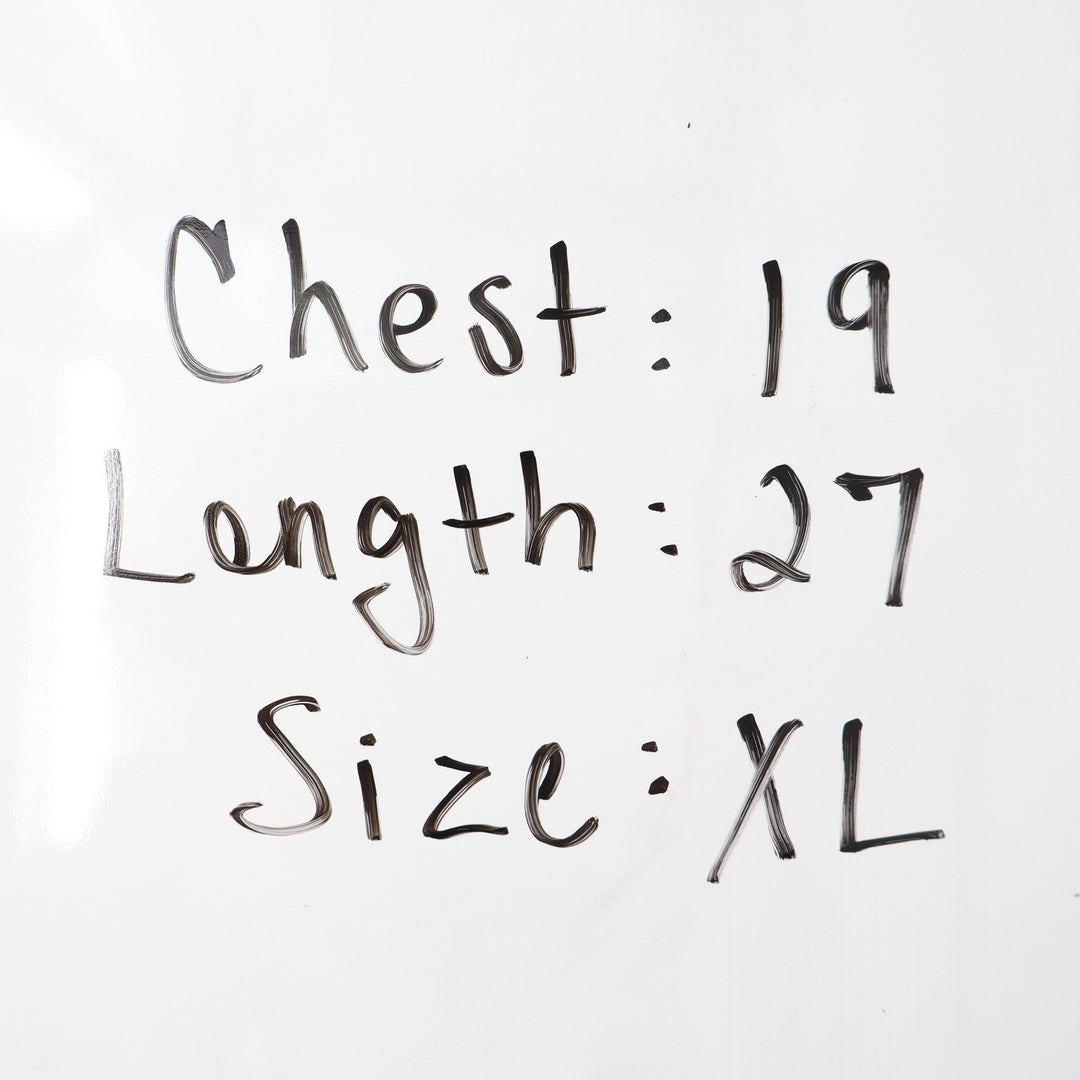 Chest: 19
Length: 27
Size: XL